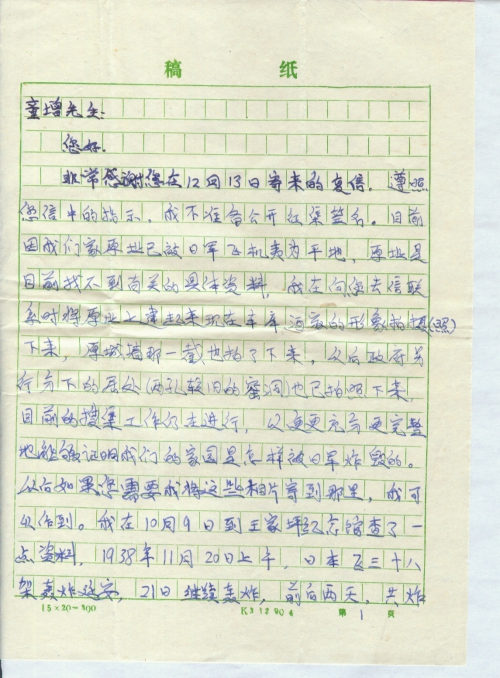 稿 纸
童增先生:
您好.
非常感谢您在12月13日寄来的复信，遵照
您信中的指示，我不准备公开征集签名。目前
因我们家原址已被日军飞机夷为平地，原址是
目前找不到有关的具体资料，我在向您去信联
系时将原址上建起来现在车库运家的形象拍摄(照)
下来，原城墙那一截也拍了下来，以后政府另
行分下的居处(两孔较旧的窑洞)也已拍照下来，
目前的搜集工作仍在进行，以便更充分更完整
地能够证明我们的家园是怎样被日军炸毁的。
以后如果您需要我将这些相片寄到那里，我可
以作到。我在10月9日到王家坪纪念馆查了一
点资料，1938年11月20日上午，日本飞三十八
架轰炸延安，21日继续轰炸，前后两天，共炸
15×20=300 K312904 第 1 页